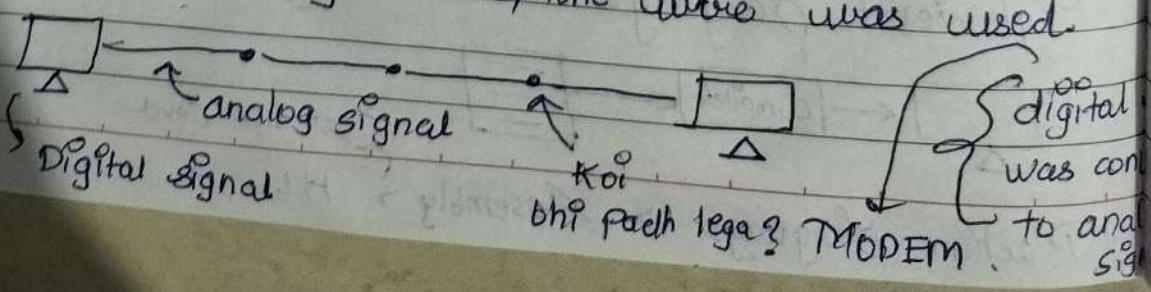 wire was used.
analog signal
Digital signal
Koi
bhi padh lega?
MODEM.
digital
was con
to anal
sig